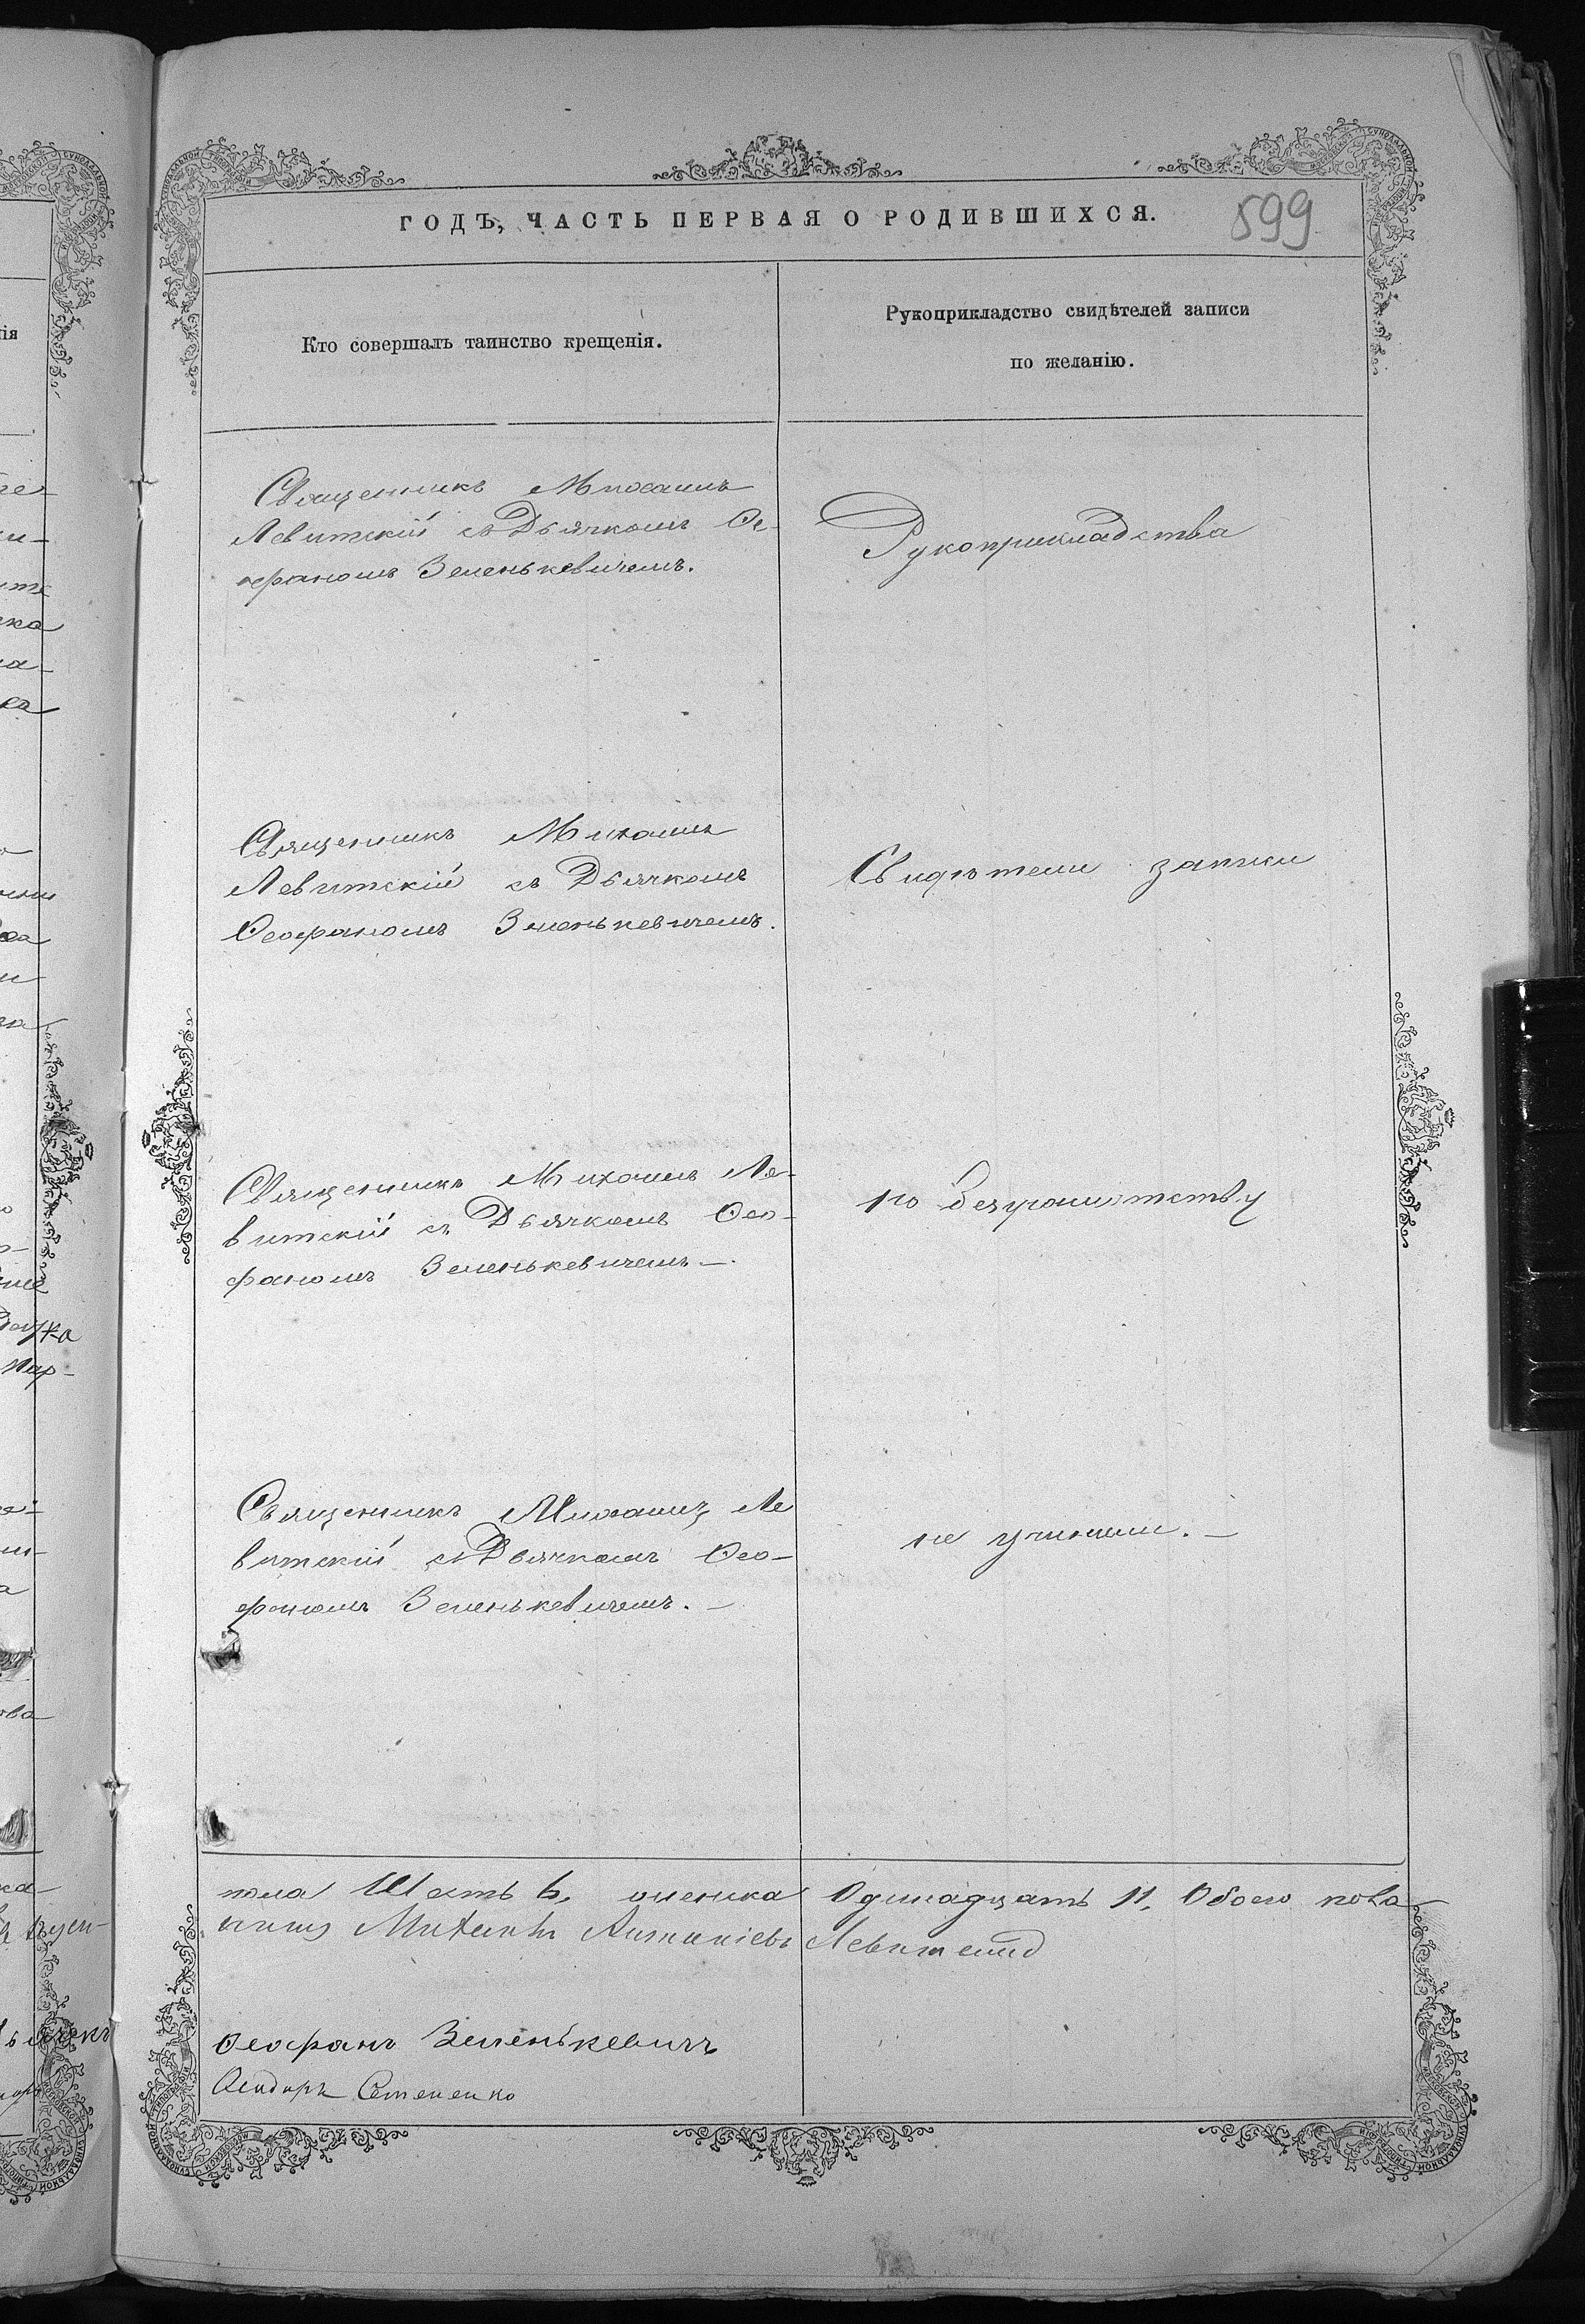 ГОДЪ, ЧАСТЬ ПЕРВАЯ О РОДИВШИХСЯ.
599
Кто совершалъ таинство крещенія.
Рукоприкладство свидѣтелей записи
по желанію.
Священникъ Михаилъ
Левитскій съ Дьячкомъ Ѳе-
офаномъ Зеленькевичемъ.
Рукоприкладства
Священникъ Михаилъ
Левитскій съ Дьячкомъ
Ѳеофаномъ Зеленькевичемъ.
Свидѣтели записи
Священникъ Михаилъ Ле-
витскій съ Дьячкомъ Ѳео-
фаномъ Зеленькевичемъ.—
по безграмотству
Священникъ Михаилъ Ле
витскій съ Дьячкомъ Ѳео-
фаномъ Зеленькевичемъ.—
не учинили.—
пола Шесть 6, женска Одинадцать 11, Обоего пола
Левитскій
Ѳеофанъ Зеленькевичъ
Семененко